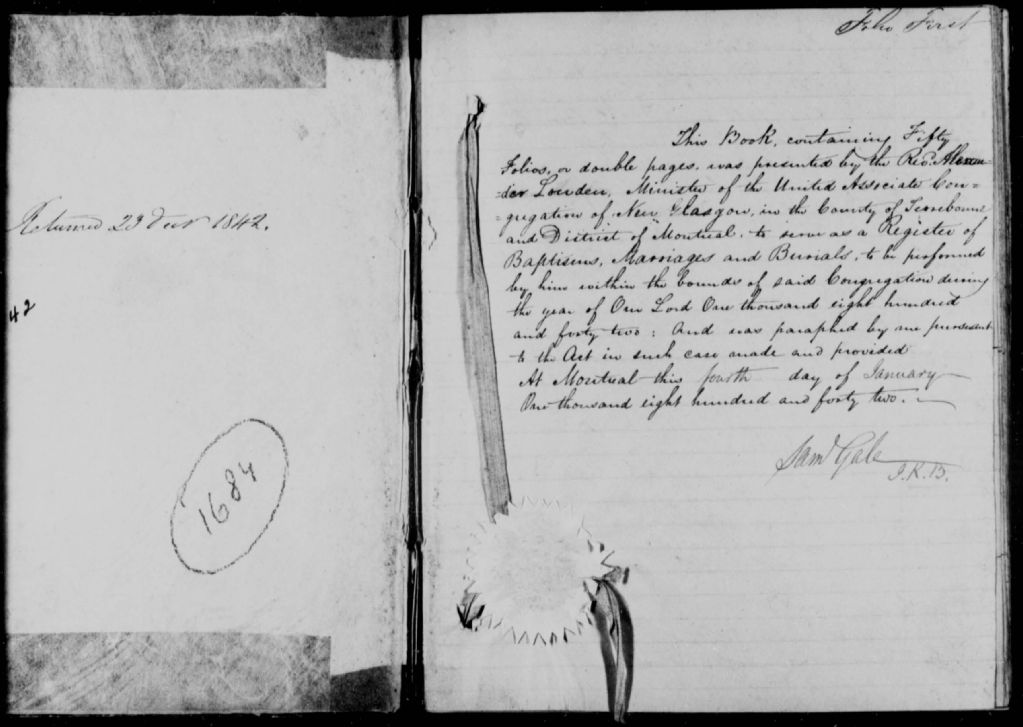 Returned 23 Decr 1842.
42
1684
Folio First
This Book, containing Fifty
Folios, or double pages, was presented by the Revd. Alexan-
der Lowden, Minister of the United Associate Con=
=gregation of New Glasgow, in the County of Terrebonne
and District of Montreal, to serve as a Register of
Baptisms, Marriages and Burials, to be performed
by him within the bounds of said Congregation during
the year of Our Lord One thousand eight hundred
and forty two: And was paraphed by me pursuant
to the Act in such case made and provided
At Montreal this fourth day of January
One thousand eight hundred and forty two.
Saml Gale
J.K.B.